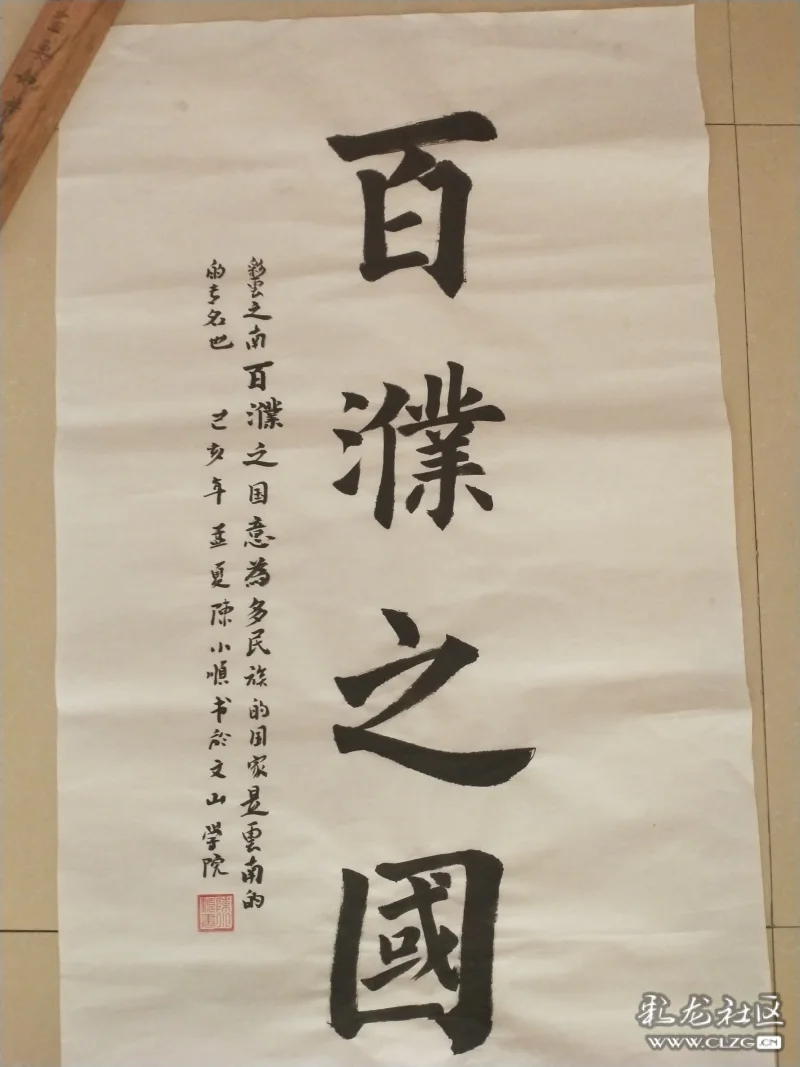 百濮之國
彩雲之南百濮之国意為多民族的国家是雲南的
的专名也 己亥年孟夏陳小順书於文山學院
彩龙社区
WWW.CLZG.CN